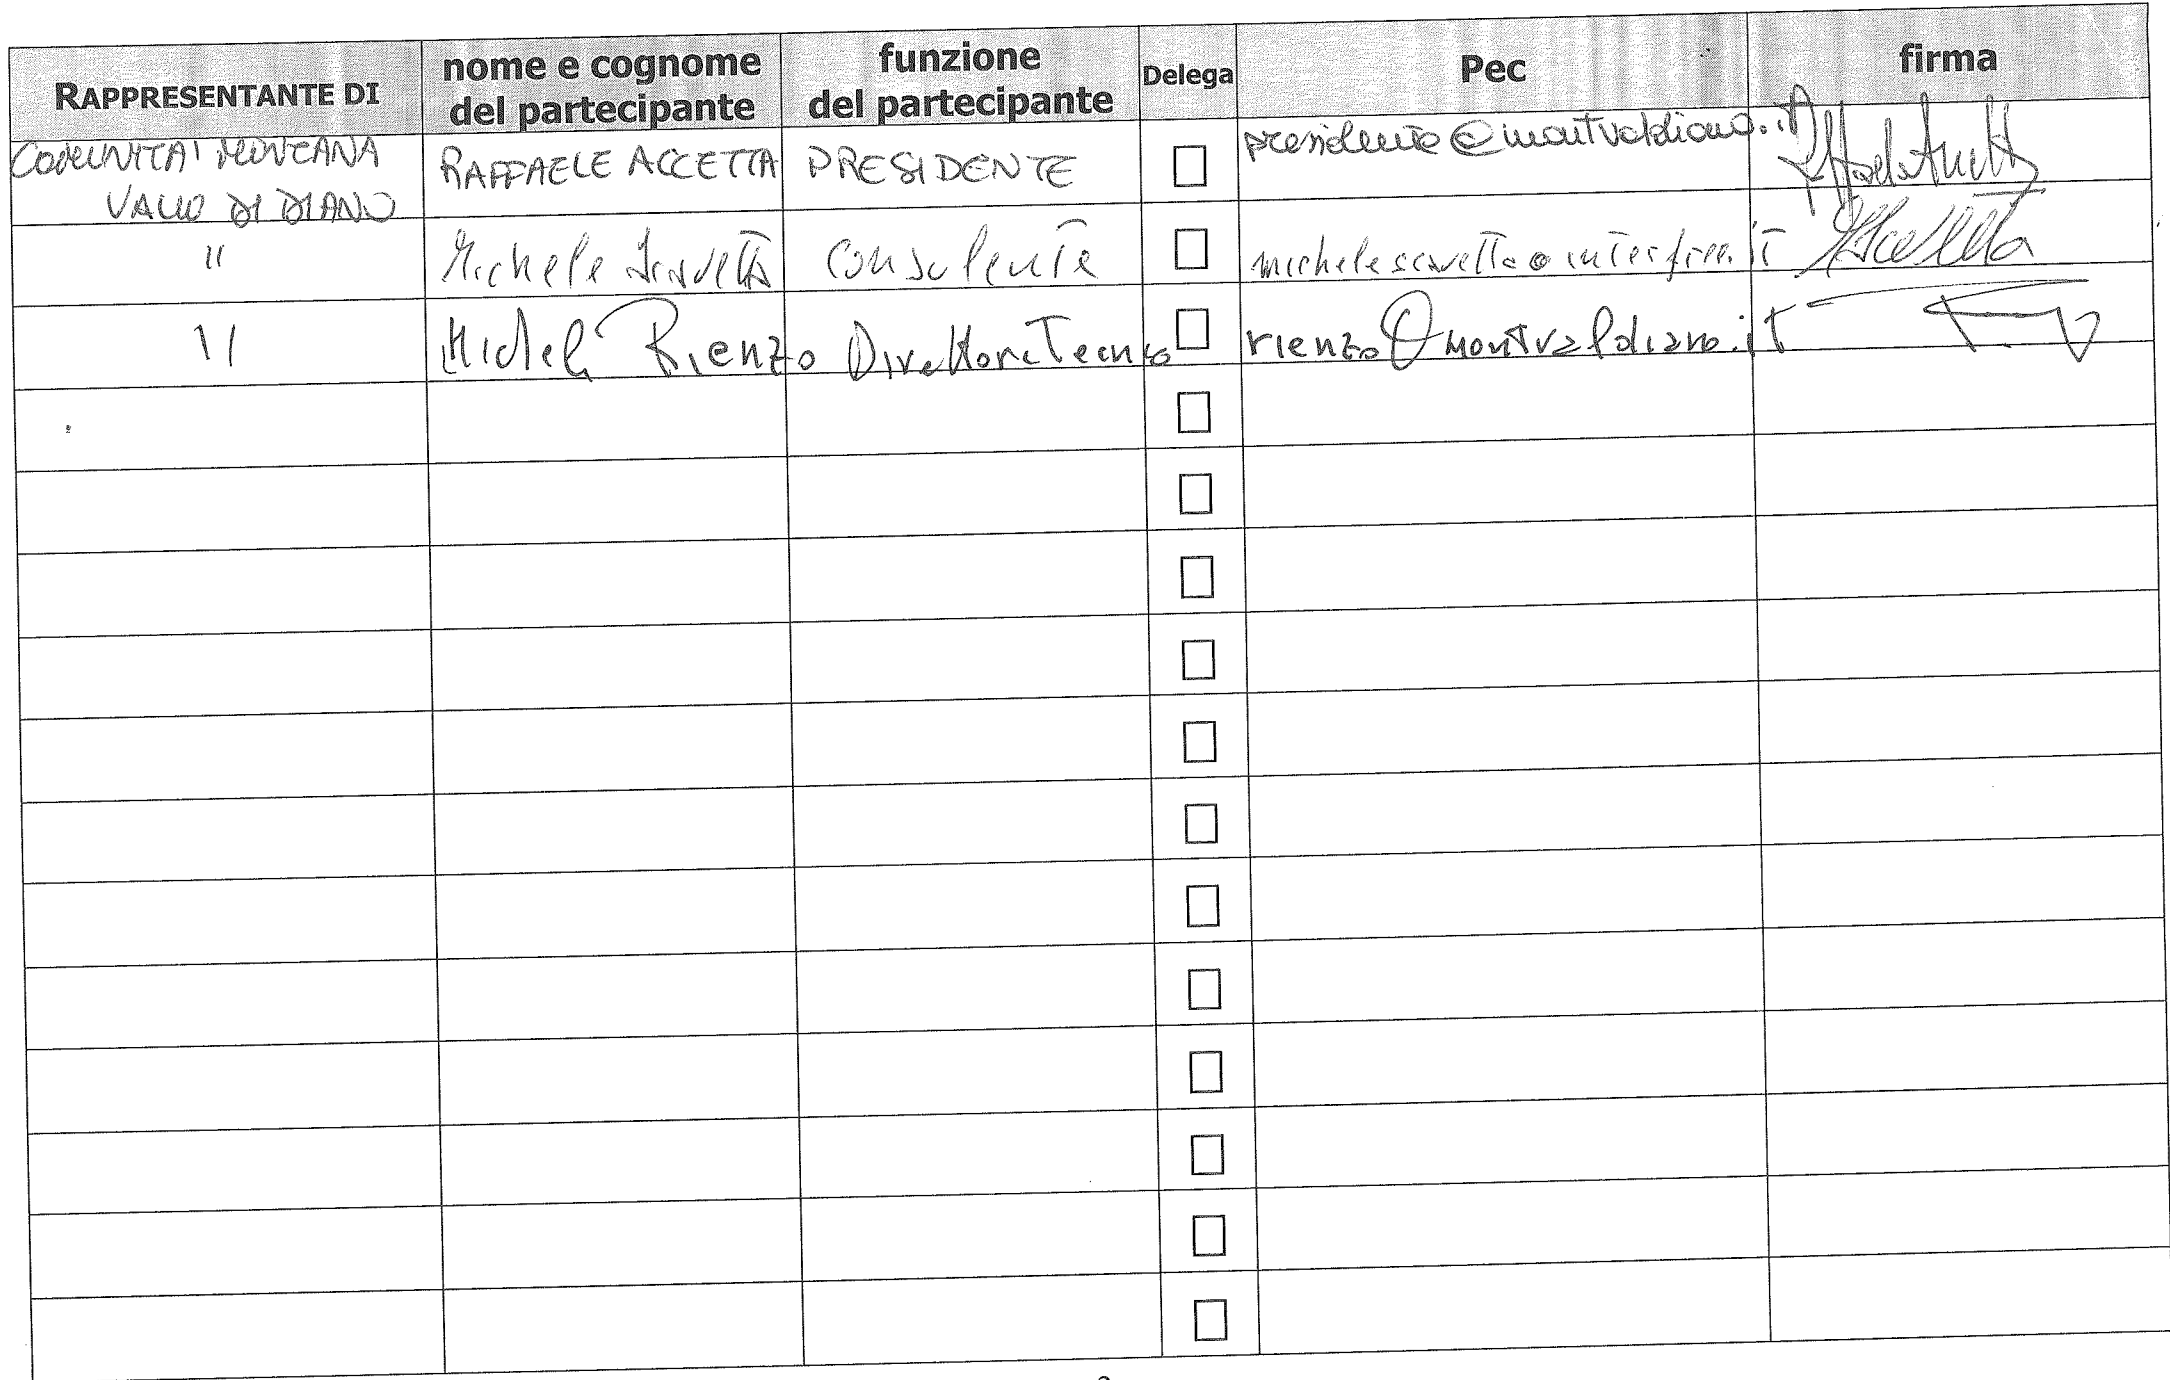 RAPPRESENTANTE DI
nome e cognome
del partecipante
funzione
del partecipante
Delega
Pec
firma
COMUNITA' MONTANA
VALLO DI DIANO
RAFFAELE ACCETTA
PRESIDENTE
presidente@montvaldiano.it
"
Michele
consulente
"
Michele Rienzo
Direttore Tecnico
rienzo@montvaldiano.it